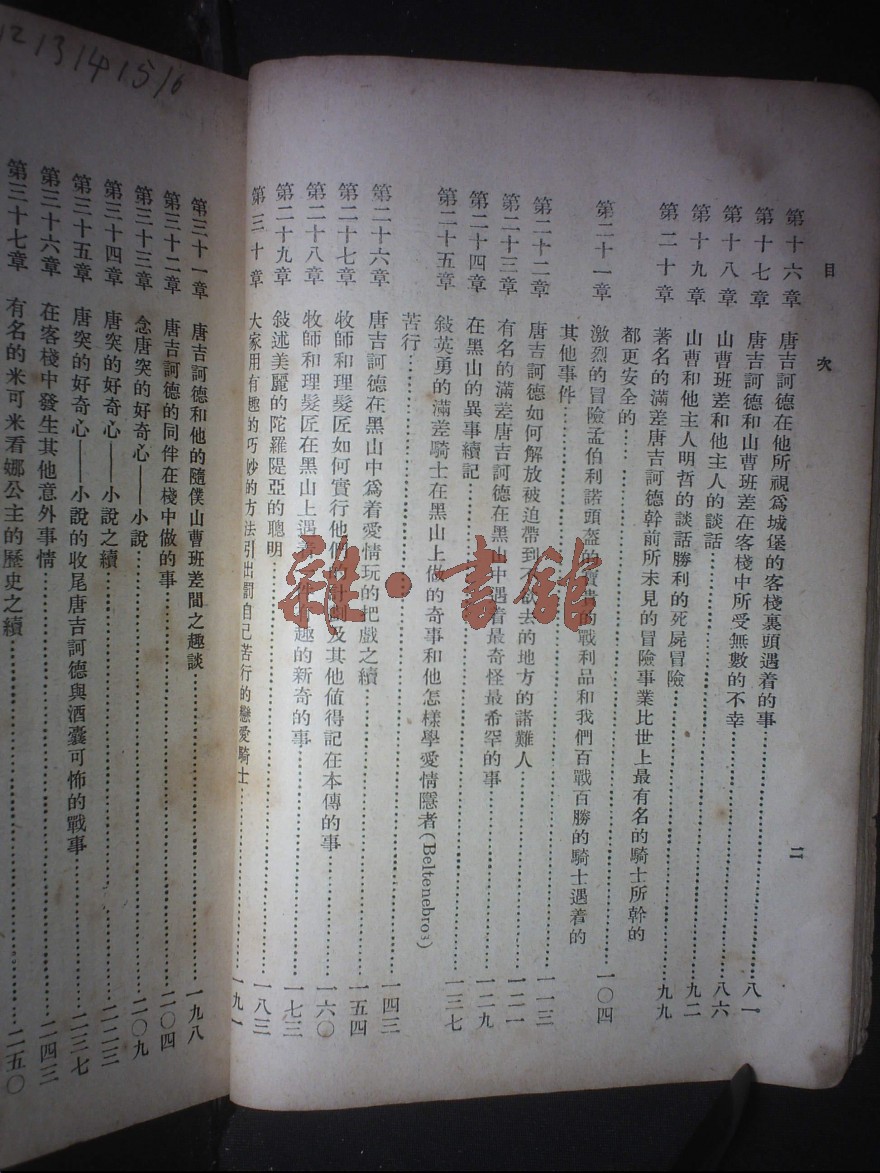 目次
二
第十六章 唐吉訶德在他所視爲城堡的客棧裏頭遇着的事……八一
第十七章 唐吉訶德和山曹班差在客棧中所受無數的不幸……八六
第十八章 山曹班差和他主人的談話……九二
第十九章 山曹和他主人明哲的談話勝利的死屍冒險……九九
第二十章 著名的滿差唐吉訶德幹前所未見的冒險事業比世上最有名的騎士所幹的
都更安全的……一〇四
第二十一章 激烈的冒險孟伯利諾頭盔的寶貴的戰利品和我們百戰百勝的騎士遇着的
其他事件……一一三
第二十二章 唐吉訶德如何解放被迫帶到不欲去的地方的諸難人……一二一
第二十三章 有名的滿差唐吉訶德在黑山中遇着最奇怪最希罕的事……一二九
第二十四章 在黑山的異事續記……一三七
第二十五章 敍英勇的滿差騎士在黑山上做的奇事和他怎樣學愛情隱者(Beltenebros)
苦行……一四三
第二十六章 唐吉訶德在黑山中爲着愛情玩的把戲之續……一五四
第二十七章 牧師和理髮匠如何實行他們的計劃及其他値得記在本傳的事……一六〇
第二十八章 牧師和理髮匠在黑山上遇 趣的新奇的事……一七三
第二十九章 敍述美麗的陀羅隄亞的聰明……一八三
第三十章 大家用有趣的巧妙的方法引出罰自己苦行的戀愛騎士……一九一
第三十一章 唐吉訶德和他的隨僕山曹班差間之趣談……一九八
第三十二章 唐吉訶德的同伴在棧中做的事……二〇四
第三十三章 念唐突的好奇心——小說……二〇九
第三十四章 唐突的好奇心——小說之續……二二三
第三十五章 唐突的好奇心——小說的收尾唐吉訶德與酒囊可怖的戰事……二三七
第三十六章 在客棧中發生其他意外事情……二四三
第三十七章 有名的米可米看娜公主的歷史之續……二五〇
12 13 14 15 16
雜·書館